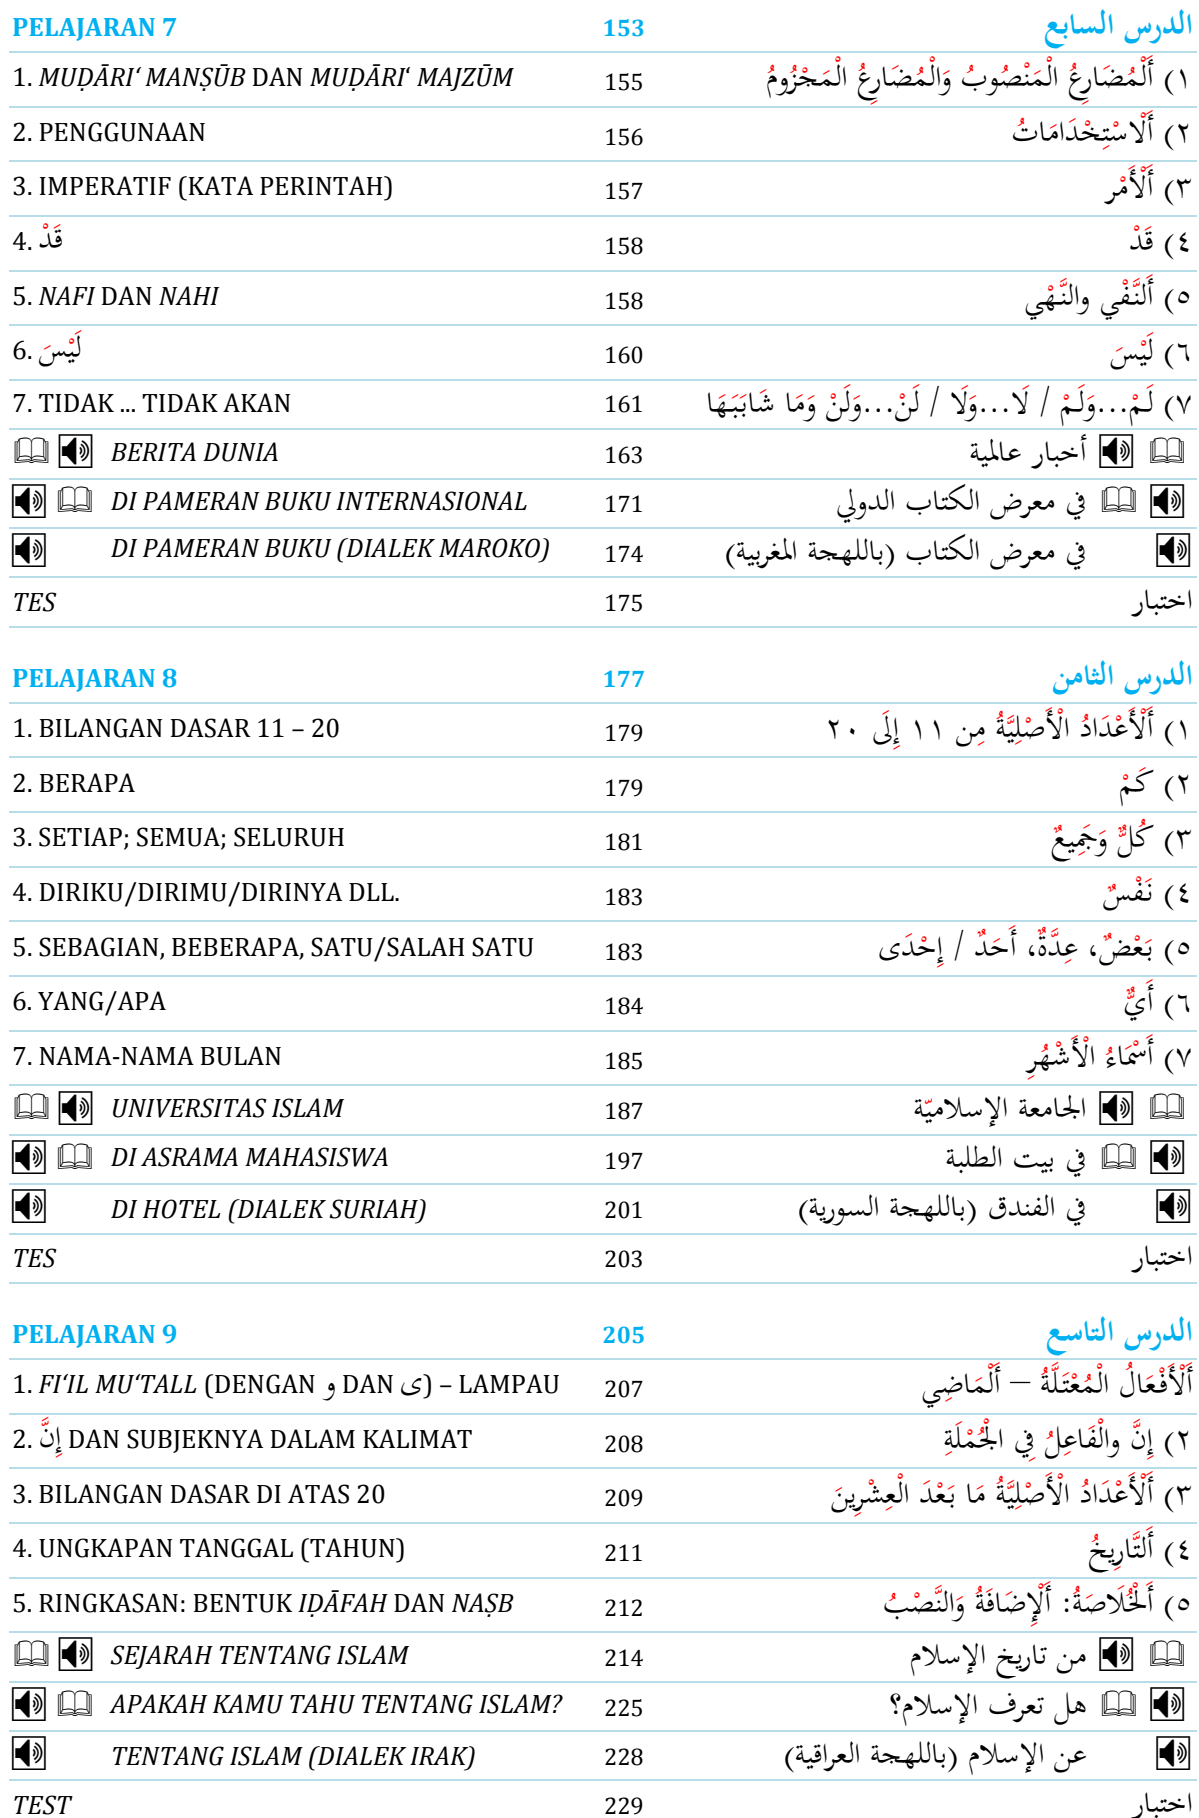 PELAJARAN 7 153 الدرس السابع
1. MUḌĀRI‘ MANṢŪB DAN MUḌĀRI‘ MAJZŪM 155 ١) أَلْمُضَارِعُ الْمَنْصُوبُ وَالْمُضَارِعُ الْمَجْزُومُ
2. PENGGUNAAN 156 ٢) أَلْاسْتِخْدَامَاتُ
3. IMPERATIF (KATA PERINTAH) 157 ٣) أَلْأَمْر
4. قَدْ 158 ٤) قَدْ
5. NAFI DAN NAHI 158 ٥) أَلنَّفْي والنَّهْي
6. لَيْسَ 160 ٦) لَيْسَ
7. TIDAK ... TIDAK AKAN 161 ٧) لَمْ...وَلَمْ / لَا...وَلَا / لَنْ...وَلَنْ وَمَا شَابَبَهَا
BERITA DUNIA 163 أخبار عالمية
DI PAMERAN BUKU INTERNASIONAL 171 في معرض الكتاب الدولي
DI PAMERAN BUKU (DIALEK MAROKO) 174 في معرض الكتاب (باللهجة المغربية)
TES 175 اختبار
PELAJARAN 8 177 الدرس الثامن
1. BILANGAN DASAR 11 – 20 179 ١) أَلْأَعْدَادُ الْأَصْلِيَّةُ مِن ١١ إِلَى ٢٠
2. BERAPA 179 ٢) كَمْ
3. SETIAP; SEMUA; SELURUH 181 ٣) كُلٌّ وَجَمِيعٌ
4. DIRIKU/DIRIMU/DIRINYA DLL. 183 ٤) نَفْسٌ
5. SEBAGIAN, BEBERAPA, SATU/SALAH SATU 183 ٥) بَعْضٌ، عِدَّةٌ، أَحَدٌ / إِحْدَى
6. YANG/APA 184 ٦) أَيٌّ
7. NAMA-NAMA BULAN 185 ٧) أَسْمَاءُ الْأَشْهُرِ
UNIVERSITAS ISLAM 187 الجامعة الإسلاميّة
DI ASRAMA MAHASISWA 197 في بيت الطلبة
DI HOTEL (DIALEK SURIAH) 201 في الفندق (باللهجة السورية)
TES 203 اختبار
PELAJARAN 9 205 الدرس التاسع
1. FI‘IL MU‘TALL (DENGAN و DAN ى) – LAMPAU 207 أَلْأَفْعَالُ الْمُعْتَلَّةُ – أَلْمَاضِي
2. إِنَّ DAN SUBJEKNYA DALAM KALIMAT 208 ٢) إِنَّ والْفَاعِلُ فِي الْجُمْلَةِ
3. BILANGAN DASAR DI ATAS 20 209 ٣) أَلْأَعْدَادُ الْأَصْلِيَّةُ مَا بَعْدَ الْعِشْرِينَ
4. UNGKAPAN TANGGAL (TAHUN) 211 ٤) أَلتَّارِيخُ
5. RINGKASAN: BENTUK IḌĀFAH DAN NAṢB 212 ٥) أَلْخُلَاصَةُ: أَلْإِضَافَةُ وَالنَّصْبُ
SEJARAH TENTANG ISLAM 214 من تاريخ الإسلام
APAKAH KAMU TAHU TENTANG ISLAM? 225 هل تعرف الإسلام؟
TENTANG ISLAM (DIALEK IRAK) 228 عن الإسلام (باللهجة العراقية)
TEST 229 اختبار